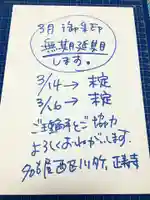 3月 御朱印
無期延期
します。
3/14 → 未定
3/16 → 未定
ご理解とご協力
よろしくおねがいします。
名古屋西区 正壽寺